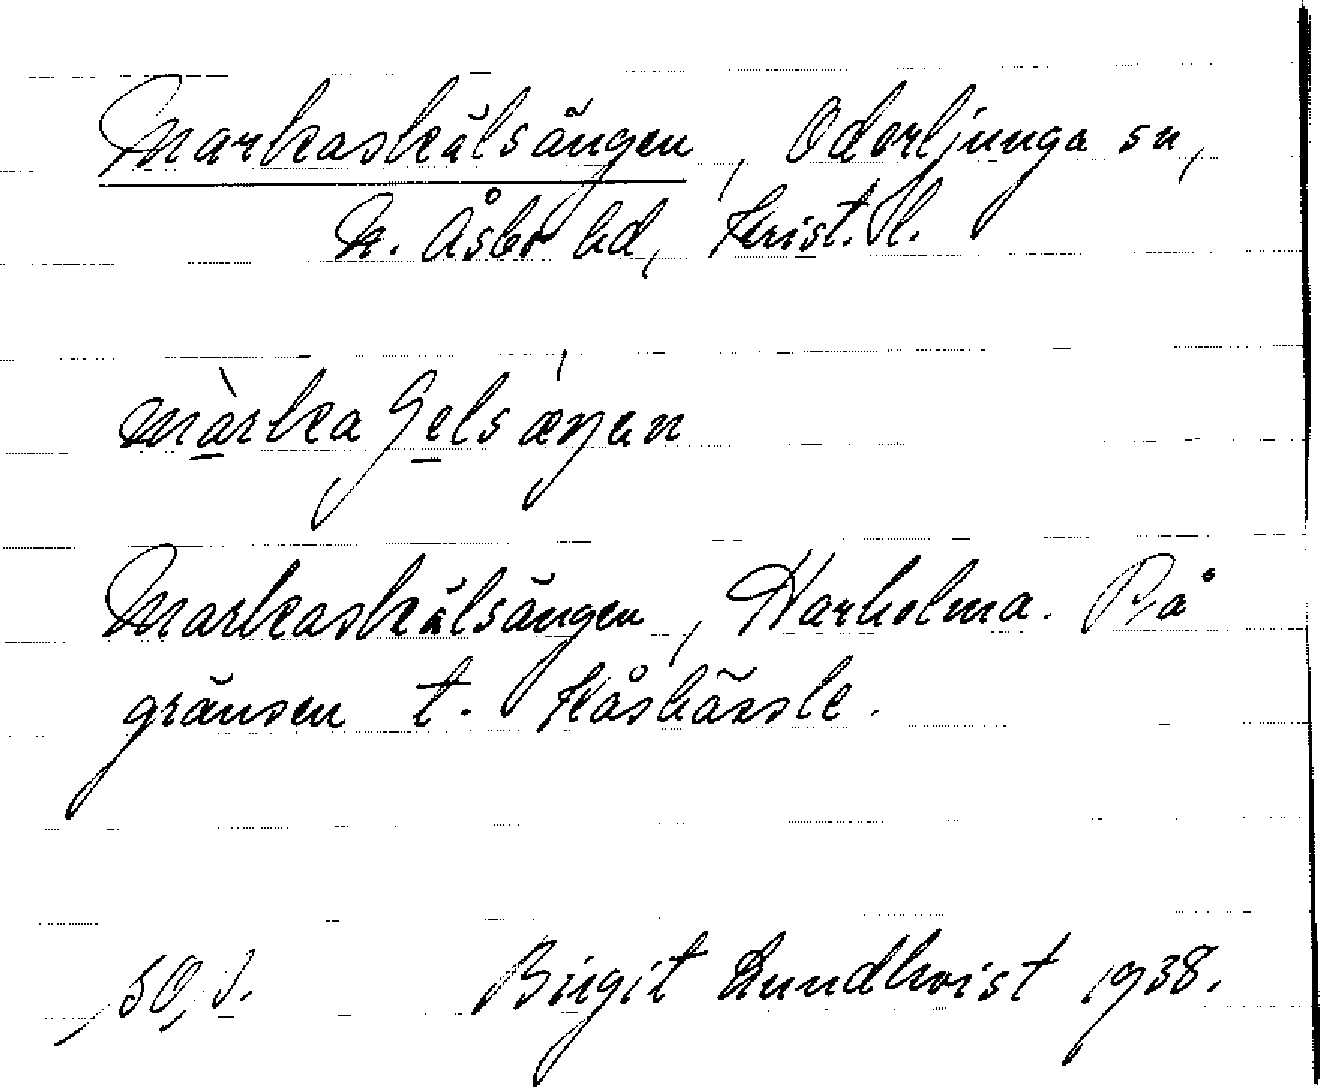 Markaskälsängen, Oderljunga sn,
N. Åsbo hd, Krist. l.
màrkaʃelsæŋen
Markaskälsängen, Harholma. På
gränsen t. Kåshässle.
Birgit Lundkvist 1938.